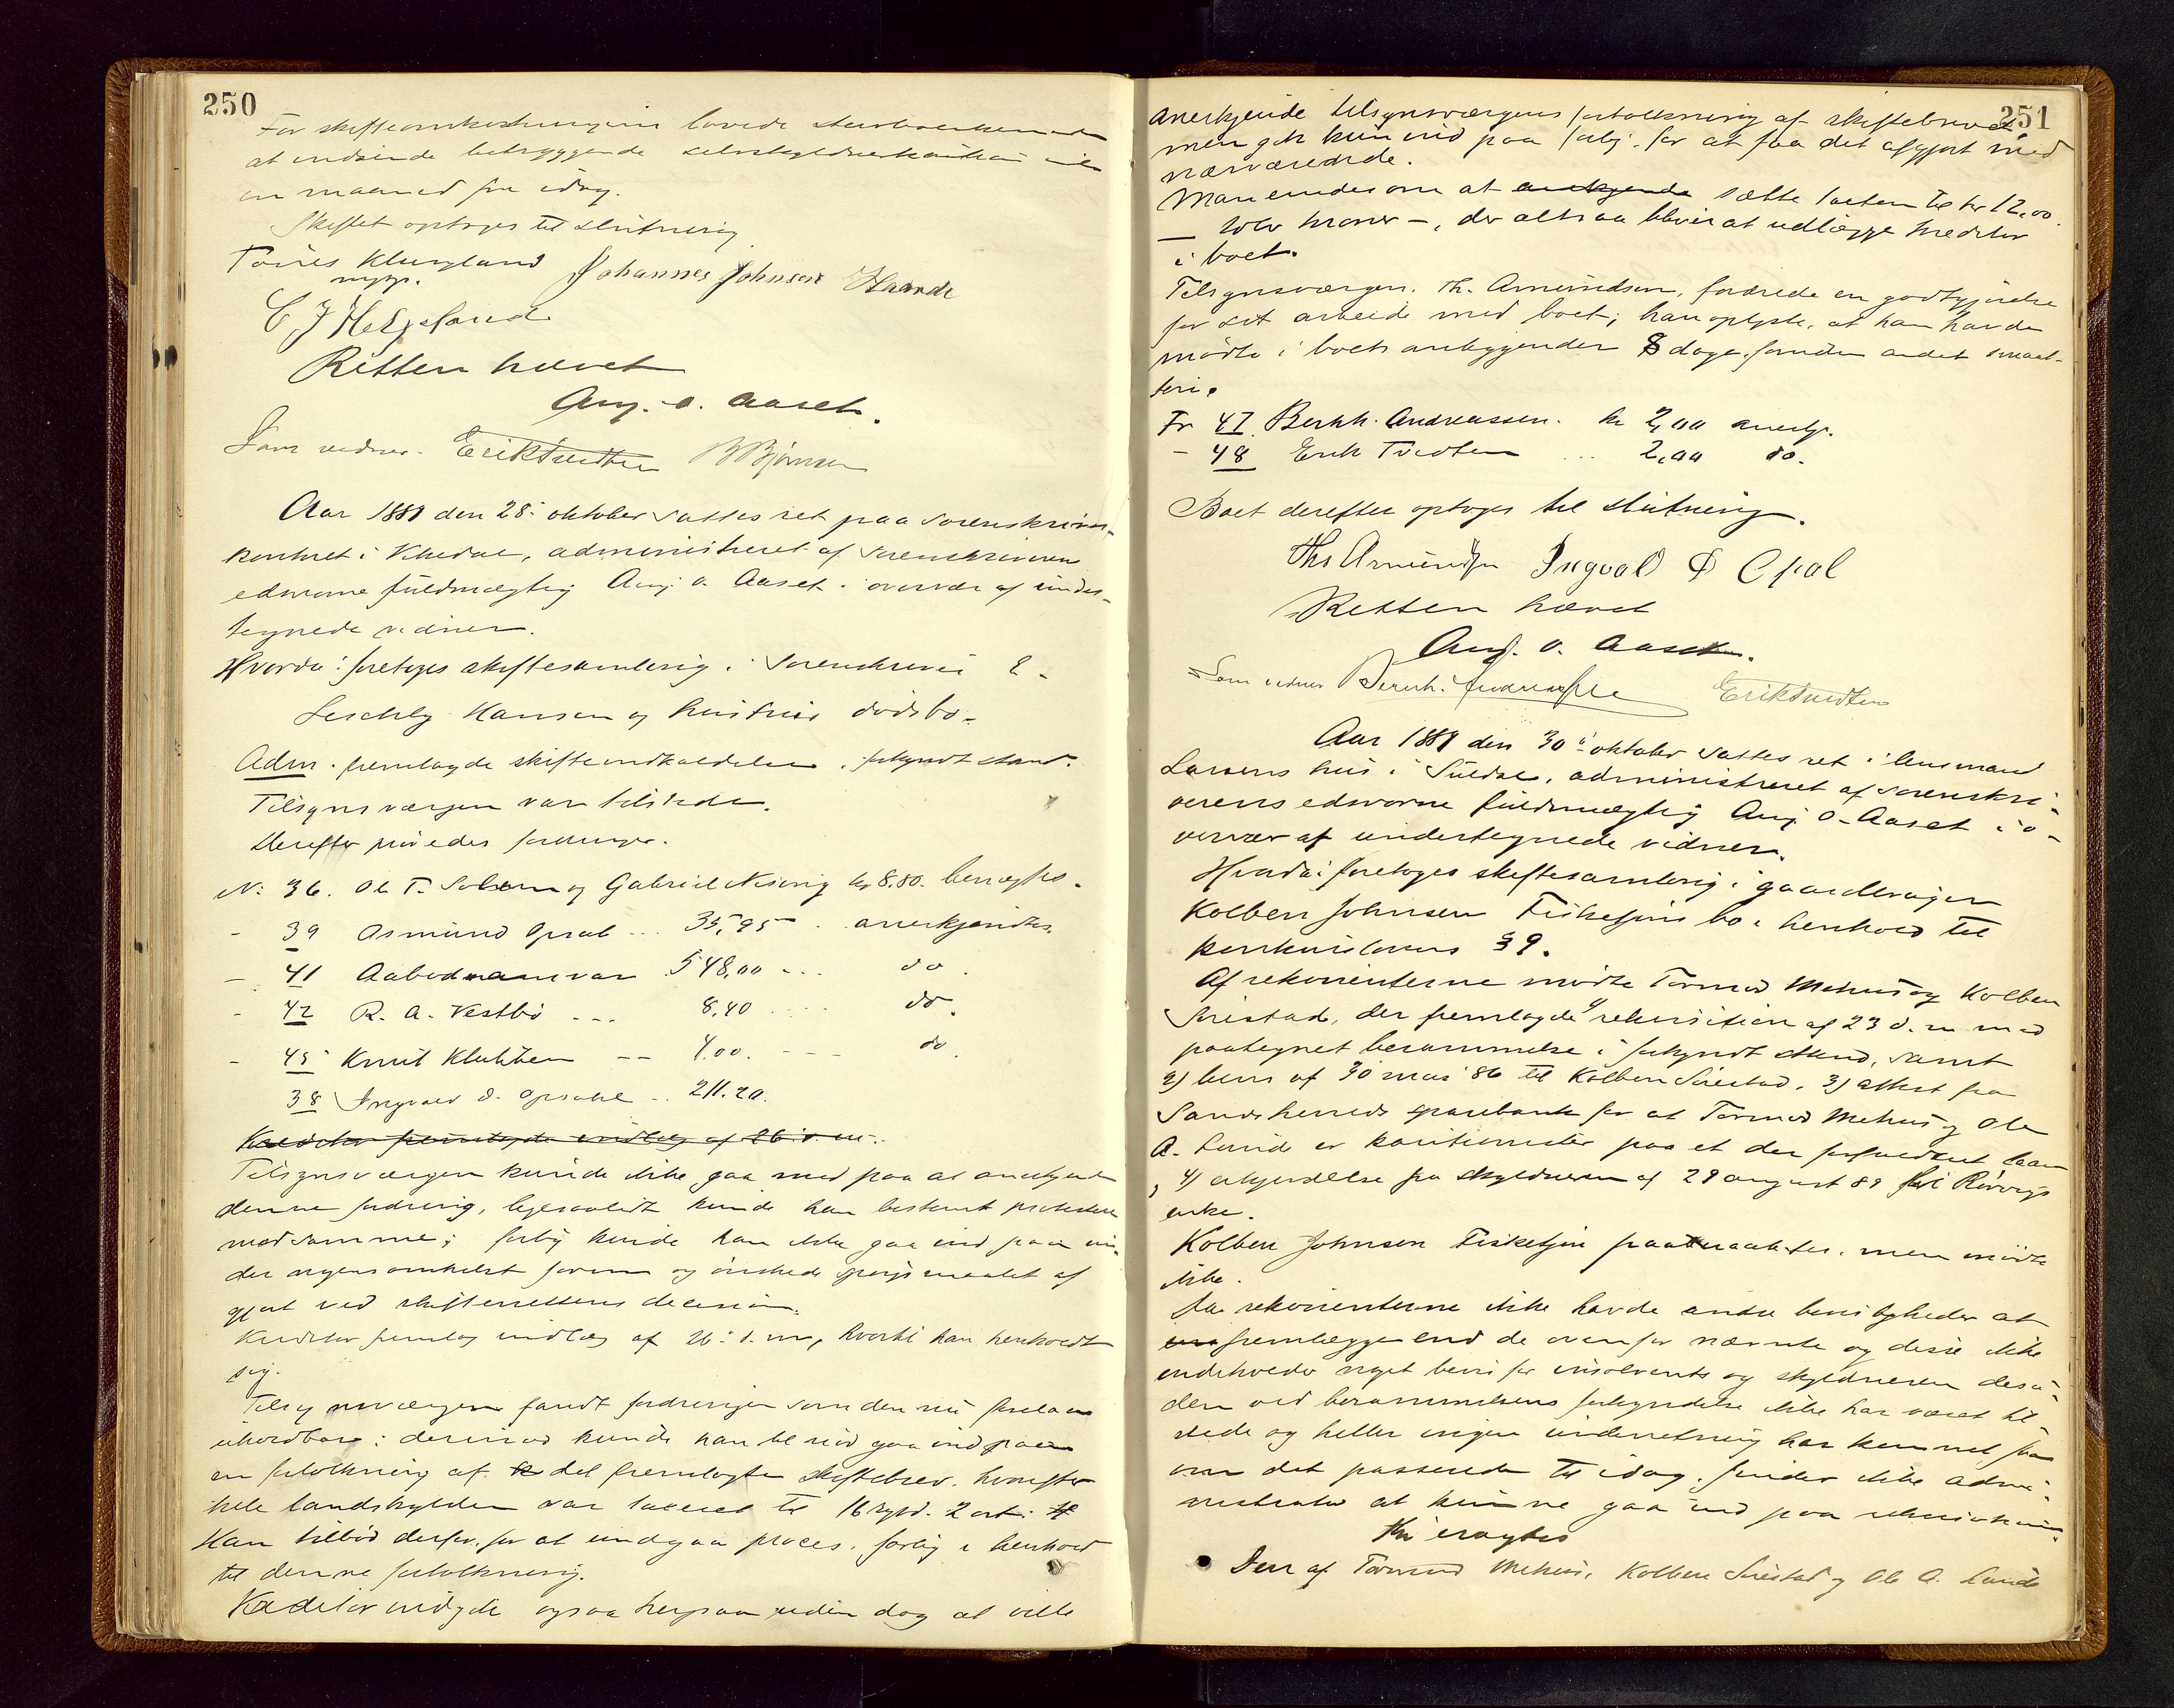 250
For skifteomkostningerne lovede
at indsende betryggende selvskyldnerkaution inden
en maaned fra idag.
Skiftet optoges til slutning
Tørres Klungland Johannes Johnsen Haande
mpp.
C J Helgeland
Retten hævet
Aug. O. Aaset.
Som vidner. Erik Tvedten B Bjørnsen
Aar 1889 den 28. oktober sattes ret paa sorenskriver-
kontoret i Vikedal, administreret af sorenskriveren
edsvorne fuldmægtig Aug. O. Aaset i overvær af under-
tegnede vidner.
Hvorda: foretoges skiftesamling i sorenskriver E.
Leschly Hansen og hustrus dødsbo-
Adm. fremlagde skifteindkaldelse i forkyndt stand.
Tilsynsværgen var tilstede.
Derefter prøvedes fordringer.
N: 36. Ole T. Solem og Gabriel Næsvig kr 8,80. benægtes.
- 39 Asmund Opsal ... 35,95 . . anerkjendtes.
- 41 548,00 ... do.
- 42 R. A. Vestbø ... 8,40 .... do.
- 45 Knut Klubben -- 4.00. --- do.
38 Ingvald O. Opsahl .. 211.20.
Kreditor fremlagde indlæg af 26. d. m.
Tilsynsværgen kunde ikke gaa med paa at anerkjende
denne fordring, ligesaalidt kunde han bestemt protestere
mod samme; forlig kunde han ikke gaa ind paa un-
der nogensomhelst form og ønskede spørgsmaalet af
gjort ved skifterettens decision.
Kreditor fremlag indlæg af 26. d. m, hvortil han henholdt
sig.
Tilsynsværgen fandt fordringen som den nu forelaa
uholdbar; derimod kunde han til nød gaa ind paa
en fortolkning af det fremlagte skiftebrev, hvorefter
hele landskylden var takseret til 16 spd. 2 ort:
Han tilbød derfor, for at undgaa proces, forlig i henhold
til denne fortolkning.
Kreditor nægtede ogsaa herpaa uden dog at ville
251
anerkjende tilsynsværgens fortolkning af skiftebrevet,
men gik kun ind paa forlig for at faa det afgjort med
nærværende.
Man enedes om at anerkjende sætte saken til kr 12,00
— tolv kroner —, der altsaa bliver at udlægge kreditor
i boet.
Tilsynsværgen, Th. Amundsen, fordrede en godtgjørelse
for sit arbeide med boet; han oplyste, at han havde
mødt i boets anliggender 8 dage foruden andet smaat-
teri.
Fr 47 Bernh. Andreassen. kr 2,00 anerkj.
- 48 Erik Tvedten ... 2,00 do.
Boet derefter optoges til slutning.
Ths Amundsen Ingvald O Opsal
Retten hævet
Aug. O. Aaset.
Som vidner Bernh. Andreassen Erik Tvedten
Aar 1889 den 30 oktober sattes ret i lensmand
Larsens hus i Suldal, administreret af sorenskri-
verens edsvorne fuldmægtig Aug. O. Aaset i o-
vervær af undertegnede vidner.
Hvorda: foretoges skiftesamling i gaardbruger
Kolben Johnsen Fisketjøns bo i henhold til
konkurslovens § 9.
Af rekvirenterne mødte Tormod Mehus og Kolben
, der fremlagde 1) rekvisition af 23 d. m med
paategnet berammelse i forkyndt stand, samt
2) brev af 30 mai 86 til Kolben , 3) attest fra
Sands herreds sparebank for at Tormod Mehus og Ole
A. Lunde er kautionister paa et der laan
, 4) erkjendelse fra skyldneren af 29 august 89 til
enke.
Kolben Johnsen Fisketjøn paaraabtes, men mødte
ikke.
Da rekvirenterne ikke havde andre bevisligheder at
fremlægge end de ovenfor nævnte og disse ikke
indeholder noget bevis for insolvents og skyldneren desu-
den ved berammelsens forkyndelse ikke har været til
stede og heller ingen underretning har kunnet faa
om det passerede til idag, finder ikke admi-
nistrator at kunne gaa ind paa rekvisitionen
Thi eragtes
Den af Tormod Mehus, Kolben og Ole A. Lunde